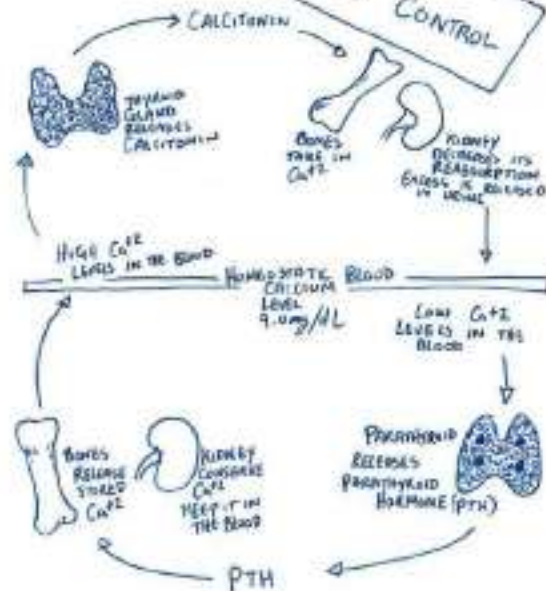 CONTROL
CALCITONIN
THYROID
GLAND
RELEASES
CALCITONIN
BONES
TAKE IN
Ca+2
KIDNEY
DECREASES ITS
REABSORPTION
EXCESS IS RELEASED
IN URINE
HIGH Ca+2
LEVELS IN THE BLOOD
HOMEOSTATIC BLOOD
CALCIUM
LEVEL
9.0mg/dL
LOW Ca+2
LEVELS IN THE
BLOOD
PARATHYROID
RELEASES
PARATHYROID
HORMONE (PTH)
BONES
RELEASE
STORED
Ca+2
KIDNEY
CONSERVE
Ca+2
KEEP IT IN
THE BLOOD
PTH